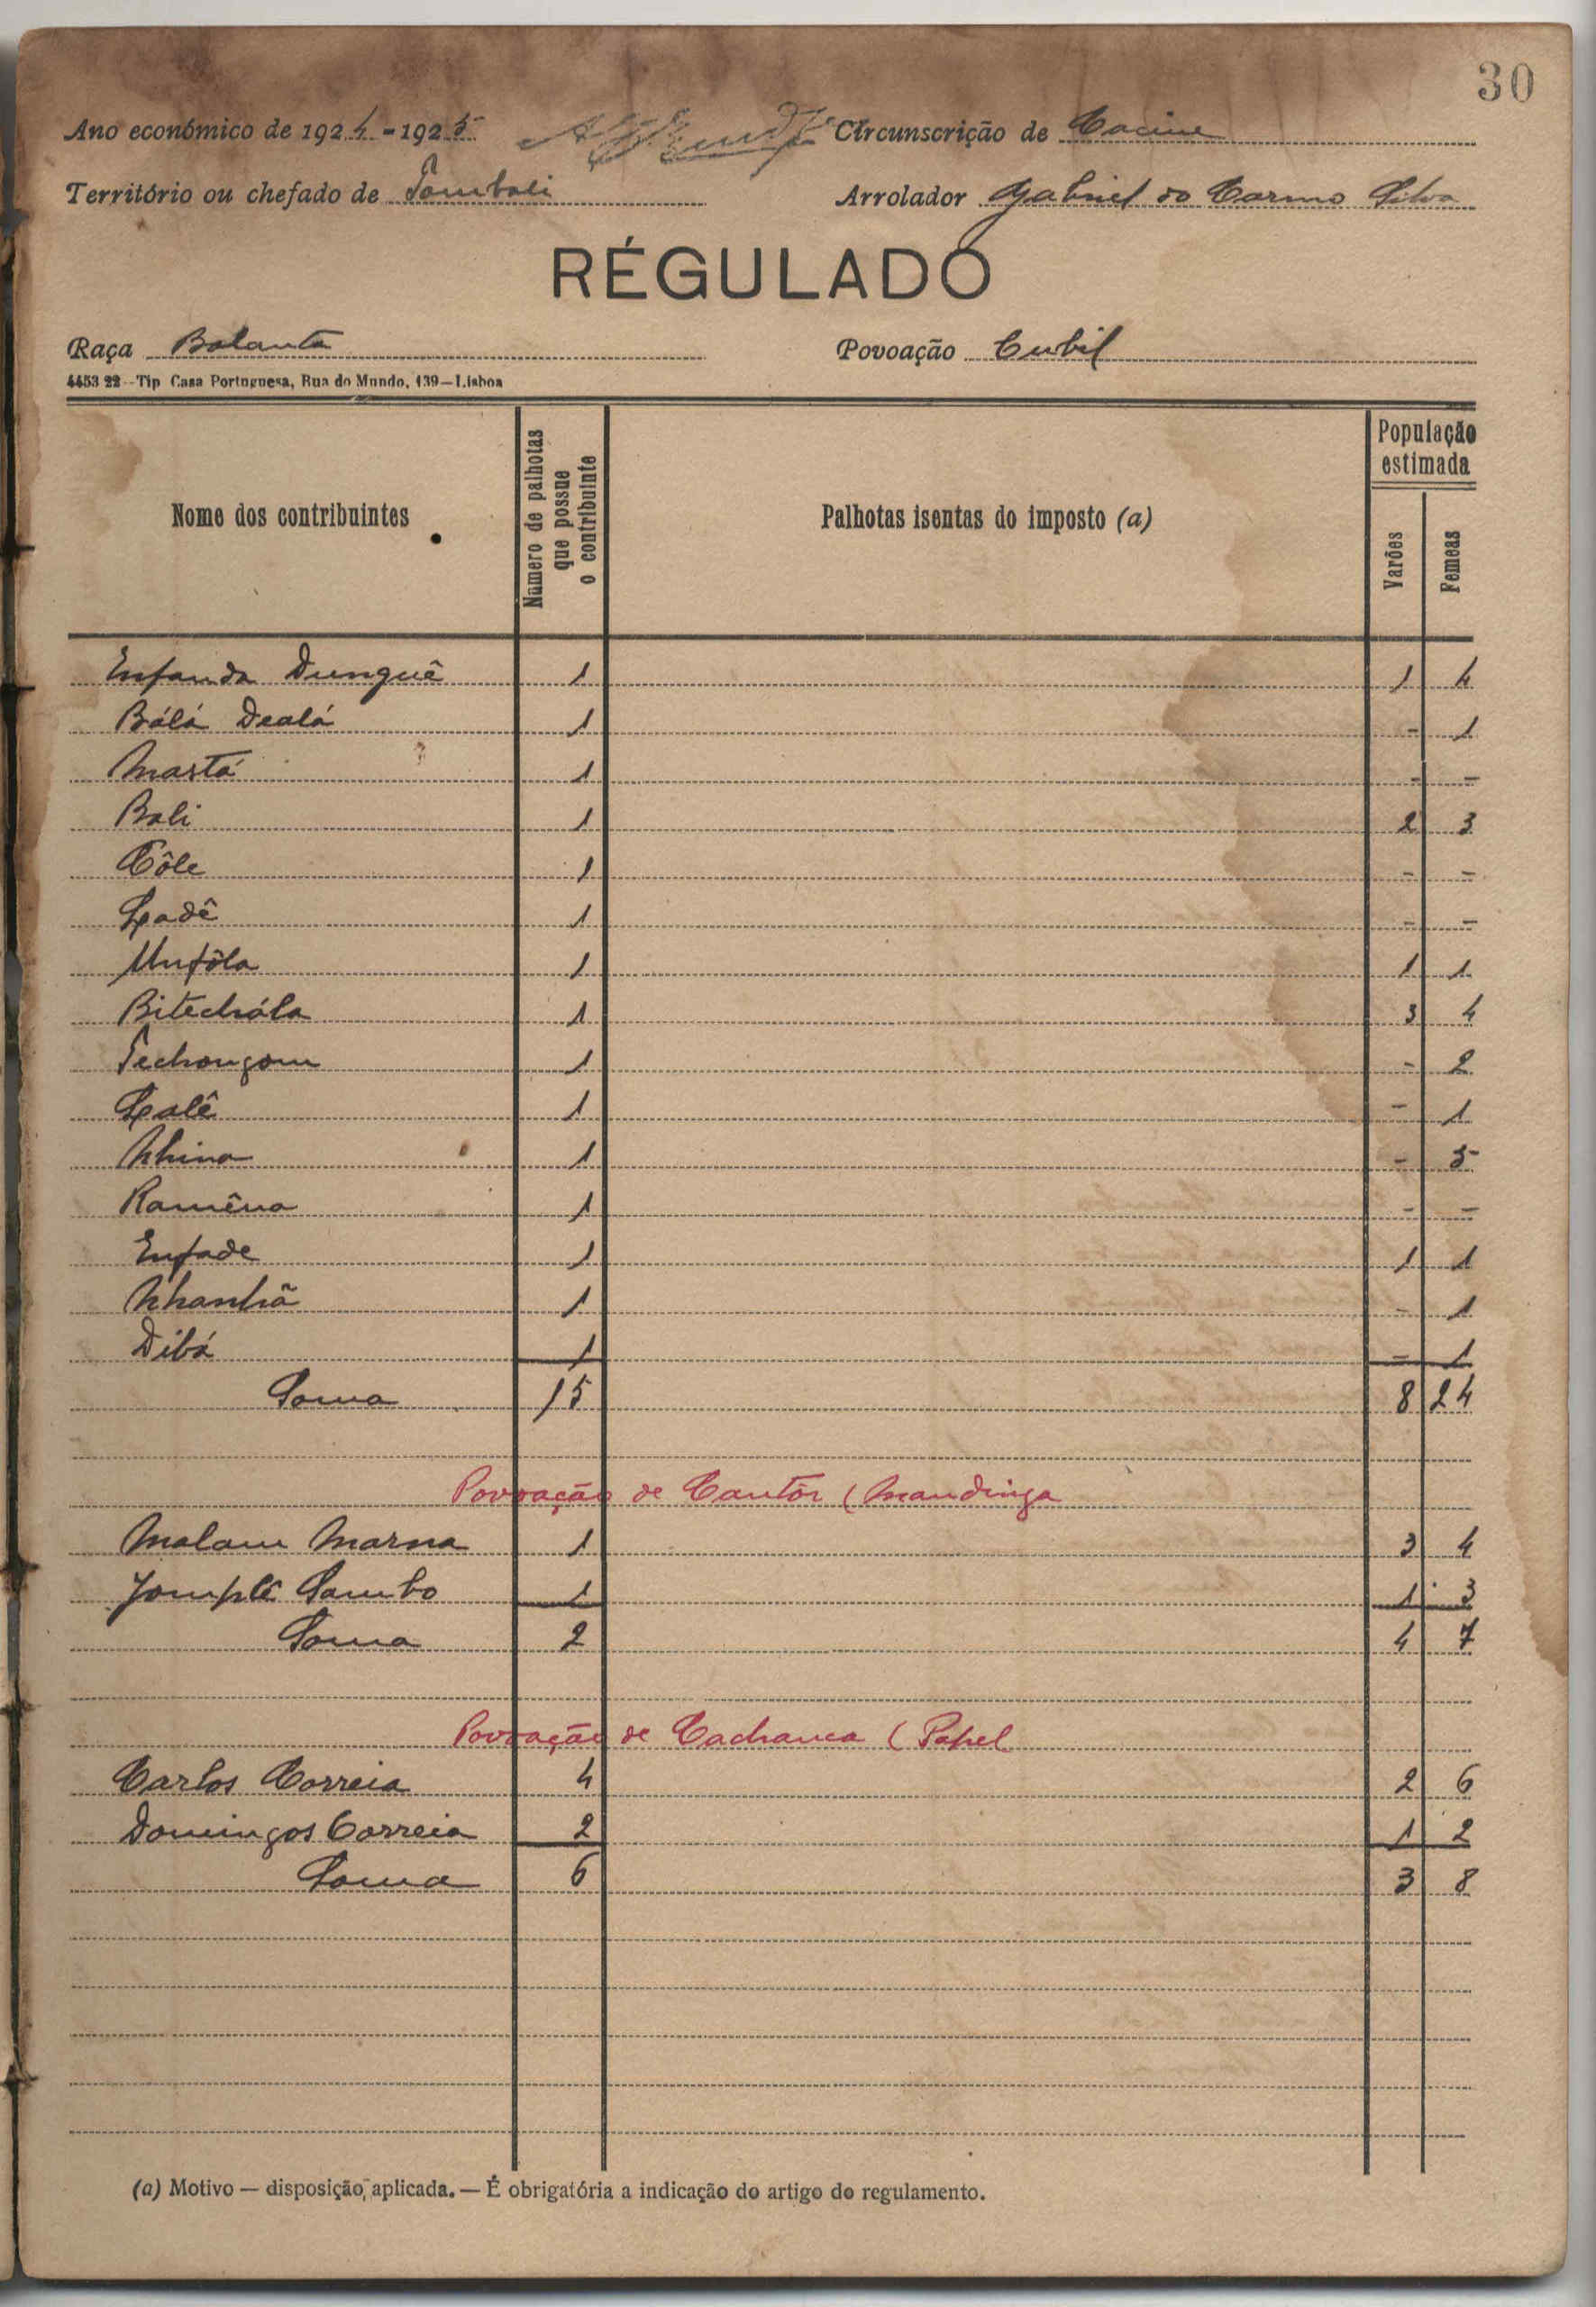 30
Ano económico de 1924-1925 Circunscrição de Cacine
Território ou chefado de Tombali Arrolador Gabriel do Carmo Silva
RÉGULADO
Raça Balanta Povoação Cubil
4453 22--Tip Casa Portuguesa, Rua do Mundo, 139—Lisboa
Nome dos contribuintes Número de palhotas que possue o contribuinte Palhotas isentas do imposto (a) População estimada Varões Femeas
Enfanda Dunguê 1 1 4
Bálá Dealá 1 - 1
Mastá 1 - -
Bali 1 2 3
Côle 1 - -
Ladê 1 - -
Unfôla 1 1 1
Bitechála 1 3 4
Techongom 1 - 2
Lalê 1 - 1
Nhina 1 - 5
Ramêna 1 - -
Enfade 1 1 1
Nhanhã 1 - 1
Dibá 1 - 1
Soma 15 8 24
Povoação de Cantôr (Mandinga
Malam Marna 1 3 4
Jomplê Sambo 1 1 3
Soma 2 4 7
Povoação de Cachanca (Papel
Carlos Correia 4 2 6
Domingos Correia 2 1 2
Soma 6 3 8
(a) Motivo — disposição, aplicada. — É obrigatória a indicação do artigo do regulamento.